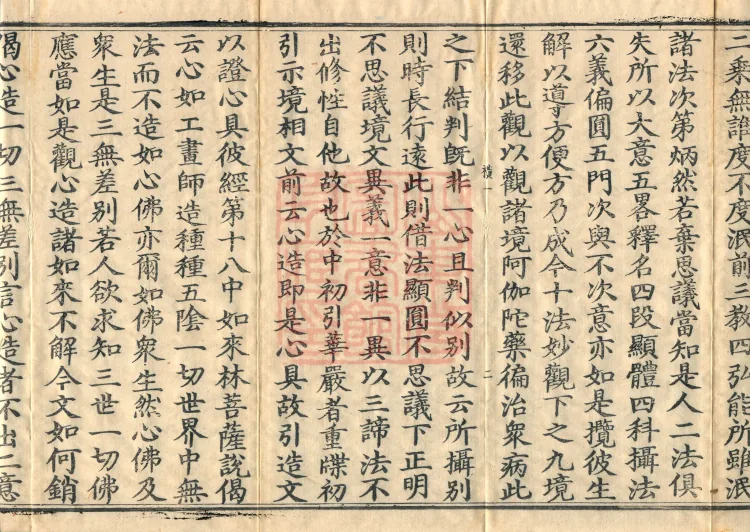 二乘無誰度不度泯前三教四弘能所雖泯
諸法次第炳然若棄思議當知是人二法俱
失所以大意五畧釋名四段顯體四科攝法
六義偏圓五門次與不次意亦如是攬彼生
解以導方便方乃成今十法妙觀下之九境
還移此觀以觀諸境阿伽陀藥徧治衆病此
之下結判旣非一心且判似別故云所攝別
則時長行遠此則借法顯圓不思議下正明
不思議境文異義一意非一異以三諦法不
出修性自他故也於中初引華嚴者重牒初
引示境相文前云心造即是心具故引造文
以證心具彼經第十八中如來林菩薩說偈
云心如工畫師造種種五陰一切世界中無
法而不造如心佛亦爾如佛衆生然心佛及
衆生是三無差別若人欲求知三世一切佛
應當如是觀心造諸如來不解今文如何銷
偈心造一切三無差別言心造者不出二意
二